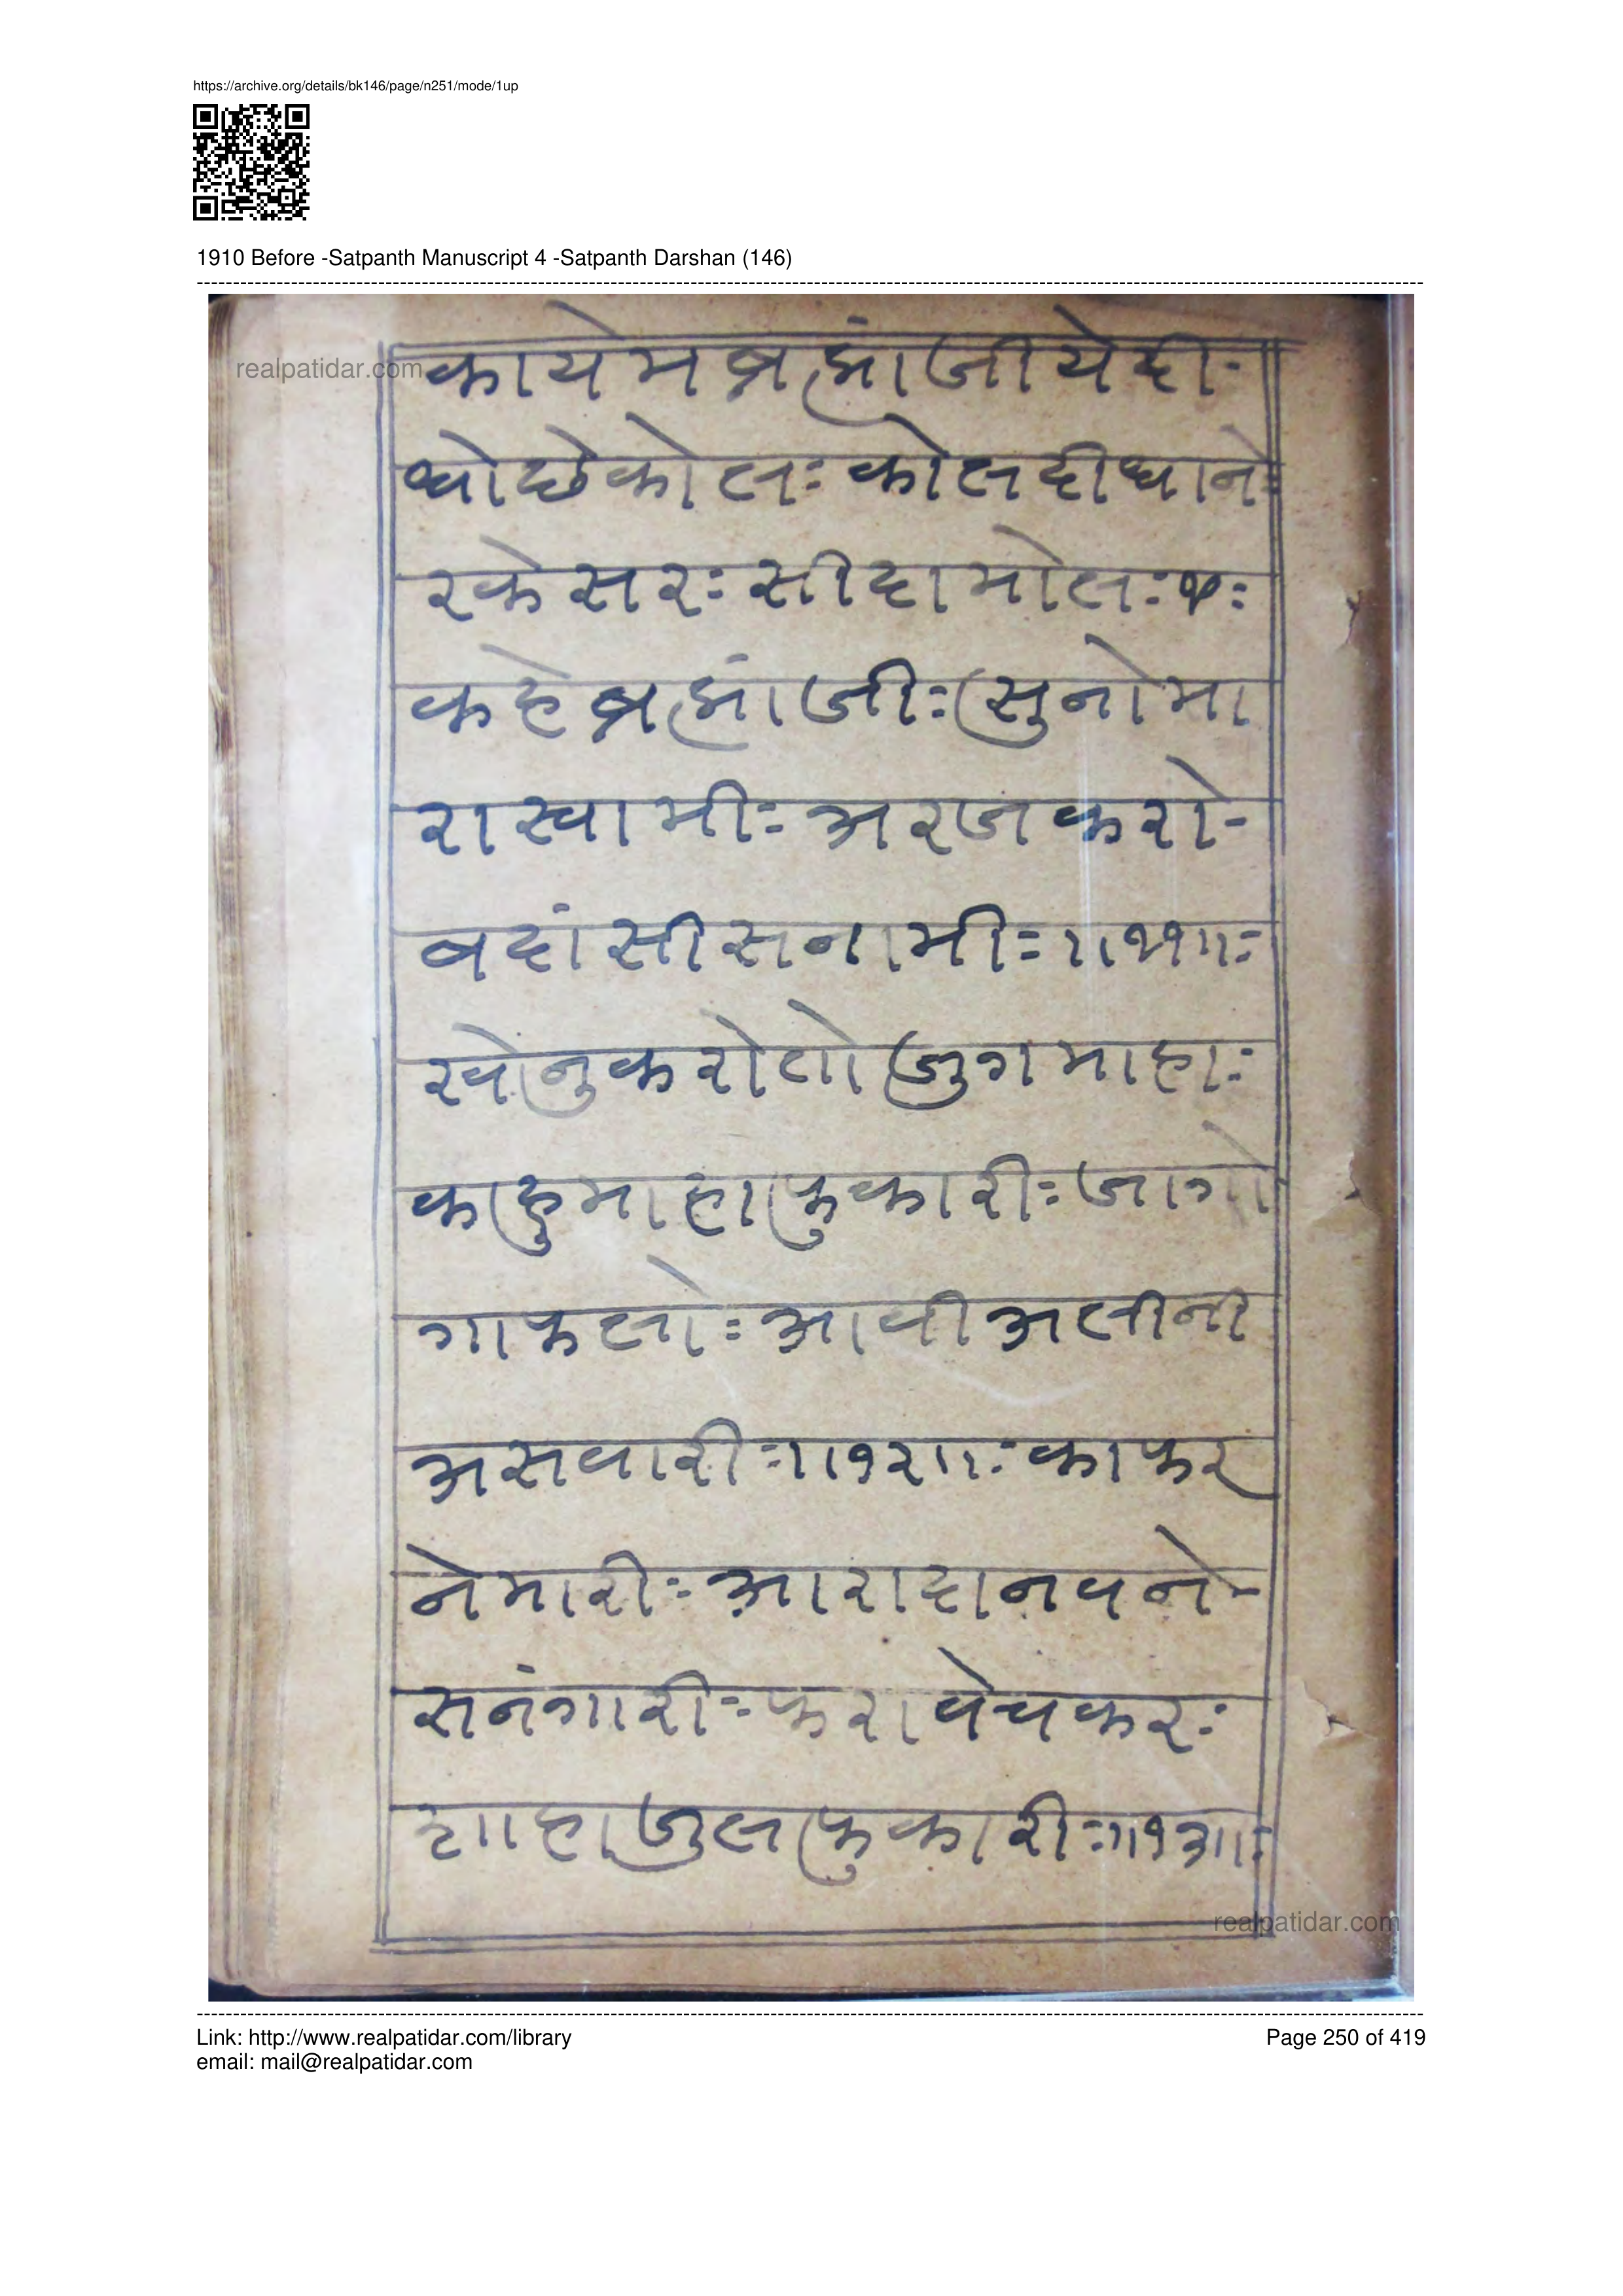 https://archive.org/details/bk146/page/n251/mode/1up
1910 Before -Satpanth Manuscript 4 -Satpanth Darshan (146)
realpatidar.com
कायेमब्रह्मांजीयेदी-
धोछेकोलः कोलदीधाने
रकेसरः सीदामोलः ५ः
कहेब्रह्मांजीः सुनोमा
रास्वामीः अरजकरो-
बदांसीसनामीः ।।११।।ः
खेानुकरोतोजुगमाहाः
कहुमाहाफुकारीः जागो
गाफलोः आवीअलीनी
असवारीः ।।१२।।ः काफर
नेमारीः आरादानवने-
सनंगारीः फरावेचकरः
शाहाजुलफुकारीः ।।१३।।ः
realpatidar.com
Link: http://www.realpatidar.com/library
Page 250 of 419
email: mail@realpatidar.com